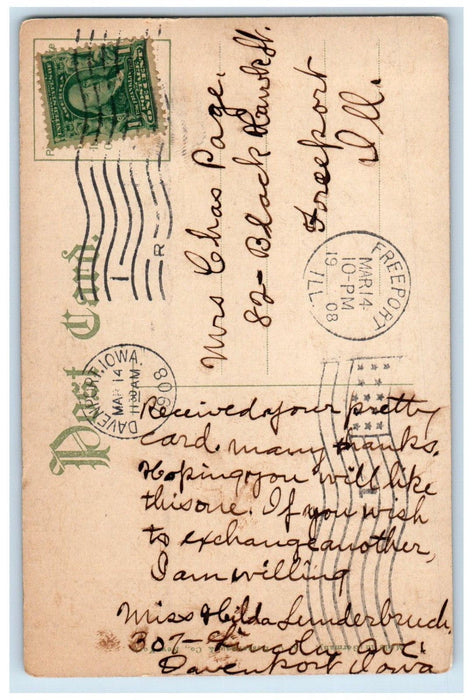 Post Card.
DAVENPORT, IOWA.
MAR 14
11 30 AM
1908
FREEPORT
MAR 14
10-PM
19 08
ILL.
Mrs Chas Page.
82- Black Hawk St.
Freeport
Ill.
Received your pretty
card. many thanks.
Hoping you will like
this one. If you wish
to exchange another,
I am willing
Miss Hilda Lunderbruck
307- Lincoln Ave.
Davenport Iowa